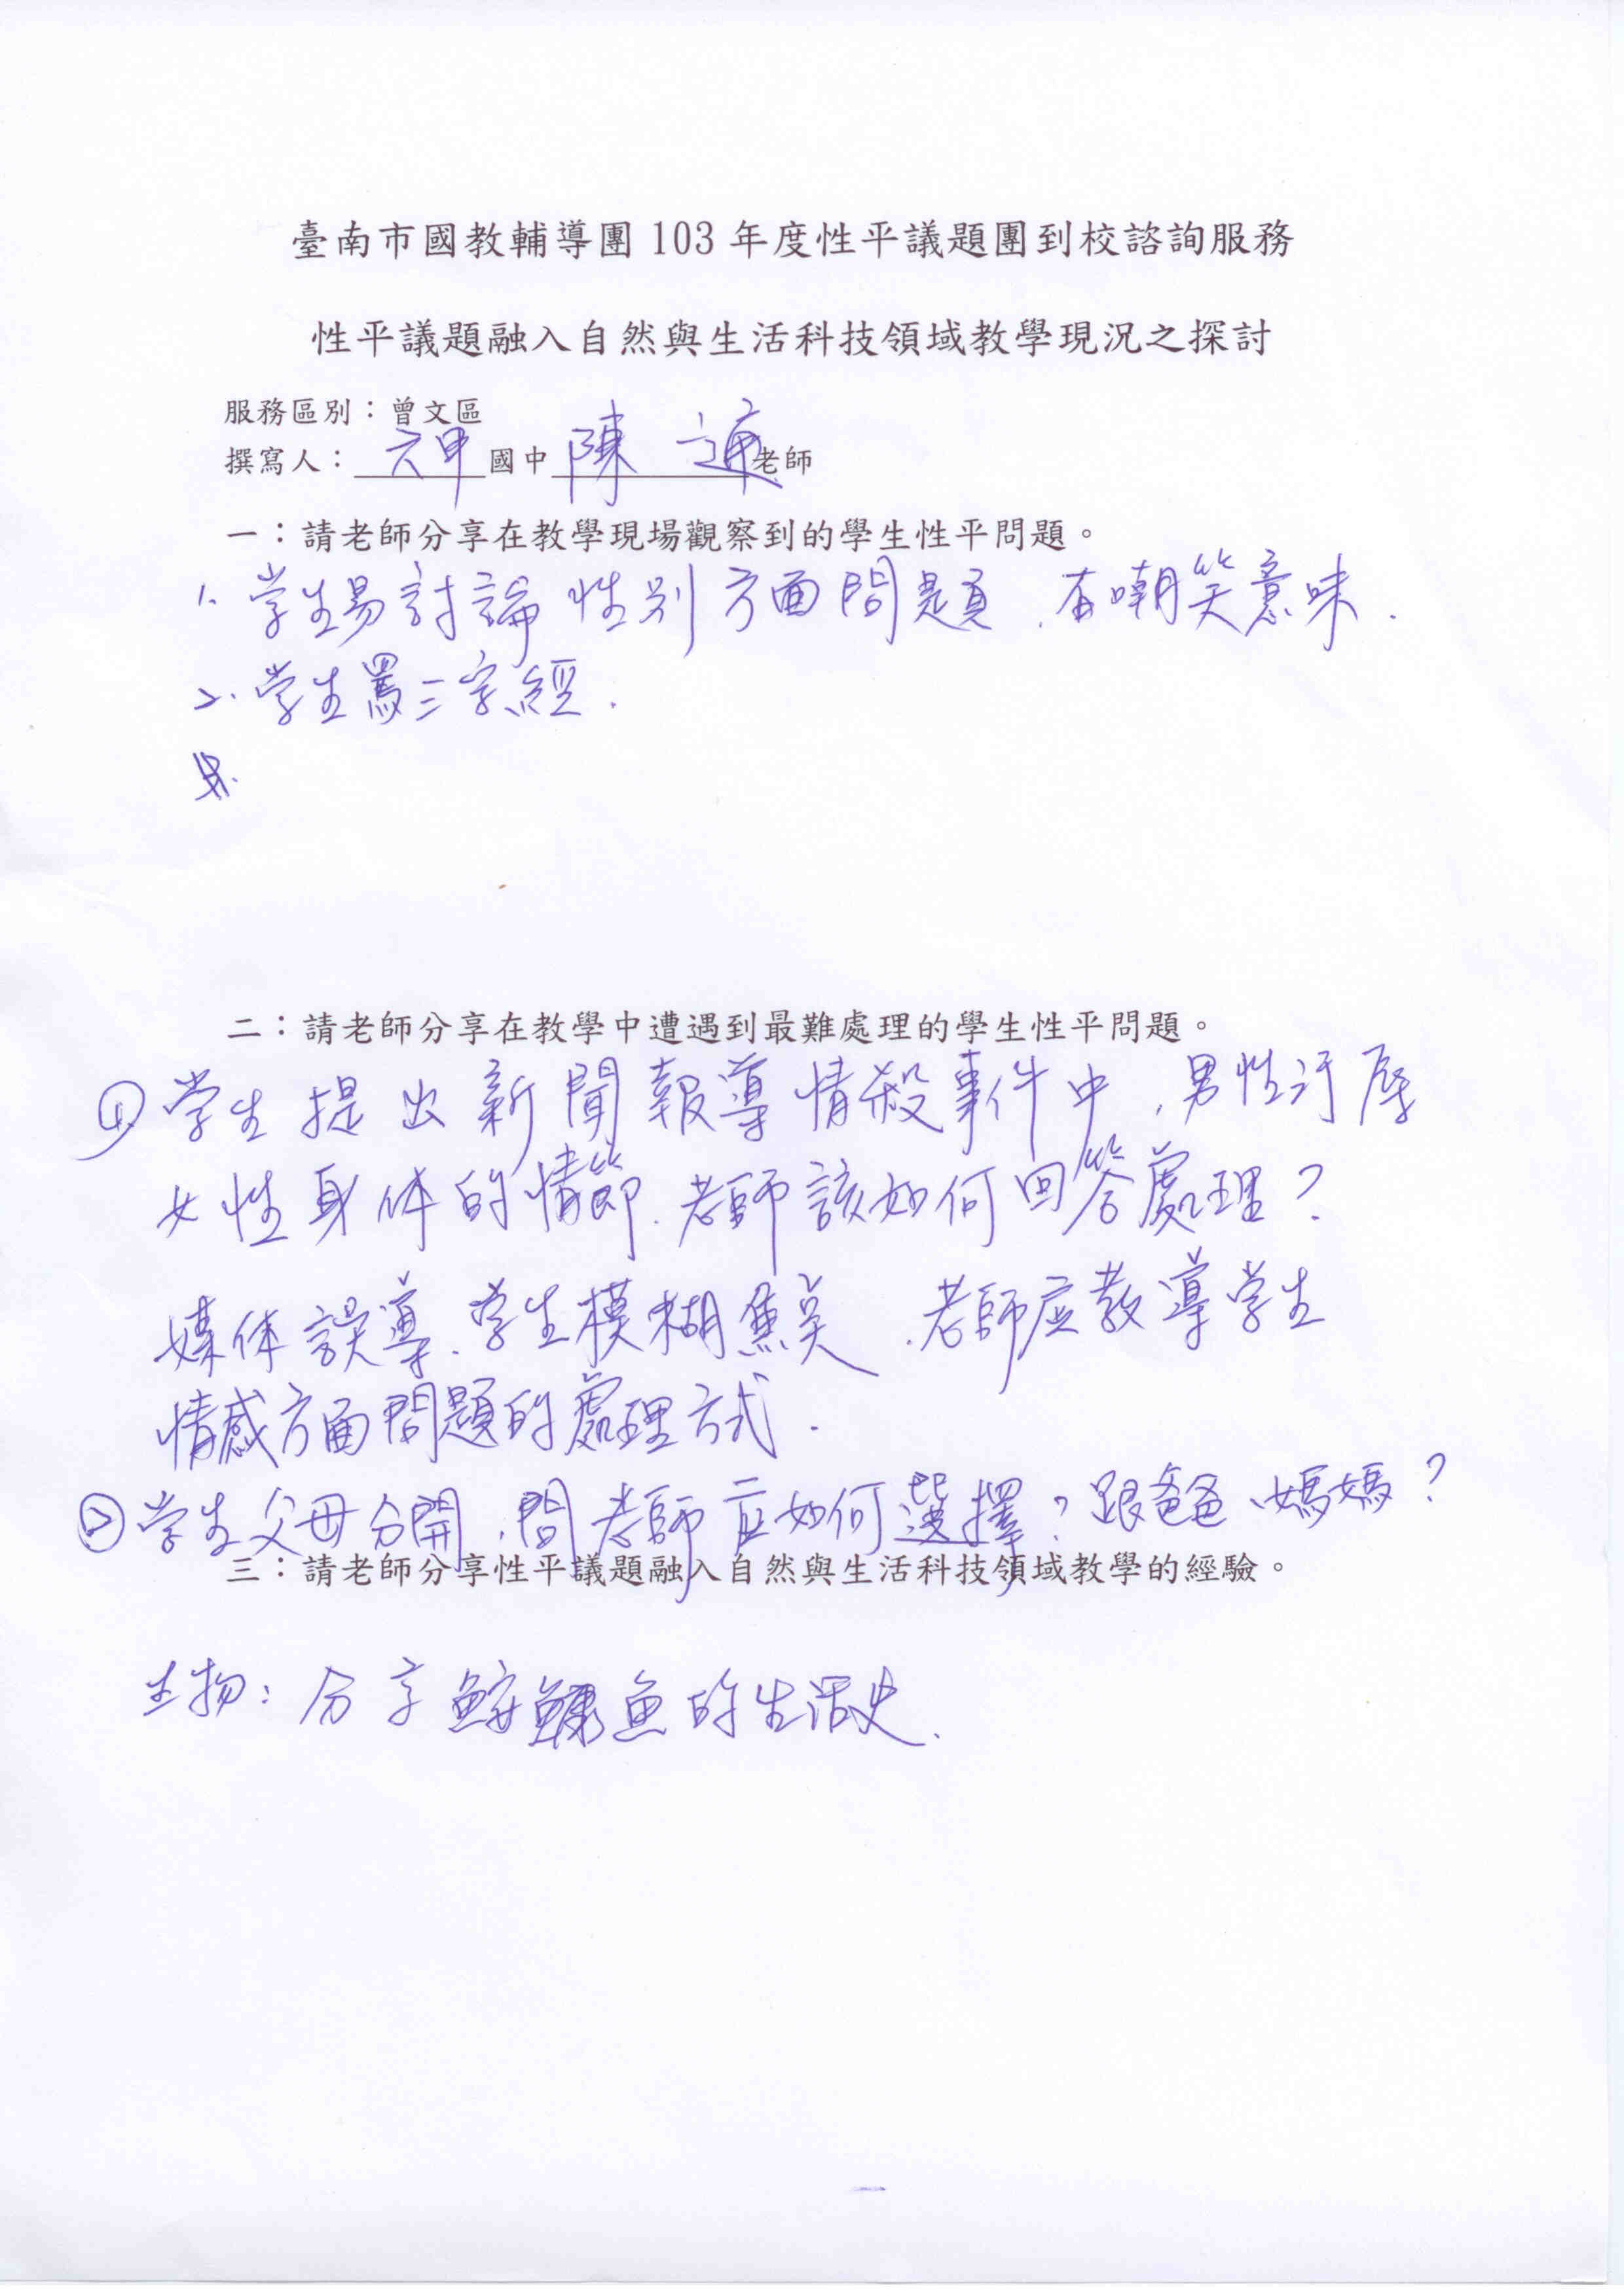 臺南市國教輔導團 103 年度性平議題團到校諮詢服務
性平議題融入自然與生活科技領域教學現況之探討
服務區別：曾文區
撰寫人：六甲國中陳 通老師
一：請老師分享在教學現場觀察到的學生性平問題。
1. 学生易討論性别方面問題，有嘲笑意味.
2. 学生罵三字經.
二：請老師分享在教學中遭遇到最難處理的學生性平問題。
① 学生提出新聞報導情殺事件中，男性汙辱
女性身体的情節. 老師該如何回答處理？
媒体誤導. 学生模糊焦点，老師应教導学生
情感方面問題的處理方式.
② 学生父母分開，問老師应如何選擇？跟爸爸、媽媽？
三：請老師分享性平議題融入自然與生活科技領域教學的經驗。
生物：分享鮟鱇魚的生活史.